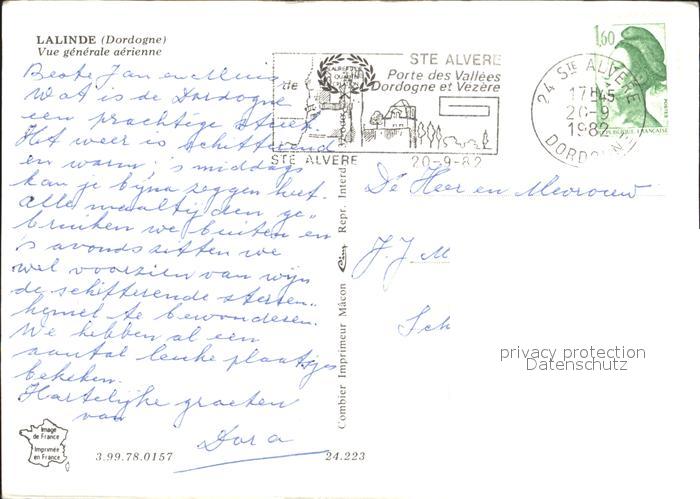 LALINDE (Dordogne)
Vue générale aérienne
Beste Jan en Muis
Wat is de Dordogne
een prachtige streek
Het weer is schitterend
en warm 's middags
kan je bijna zeggen heet.
Alle maaltijden ge-
bruiken we buiten en
's avonds zitten we
wel voorzien van wijn
de schitterende sterren-
hemel te bewonderen.
We hebben al een
aantal leuke plaatsjes
bekeken.
Hartelijke groeten
van
Dora
Image
de France
Imprimée
en France
3.99.78.0157
24.223
Combier Imprimeur Mâcon Cim Repr. Interd
STE ALVERE
Porte des Vallées
de Dordogne et Vezère
STE ALVERE
20-9-82
24 STE ALVERE
17H45
20-9
1982
DORDOGNE
1,60
POSTES
REPUBLIQUE FRANÇAISE
De Heer en Mevrouw
J. J. M
Sch
privacy protection
Datenschutz